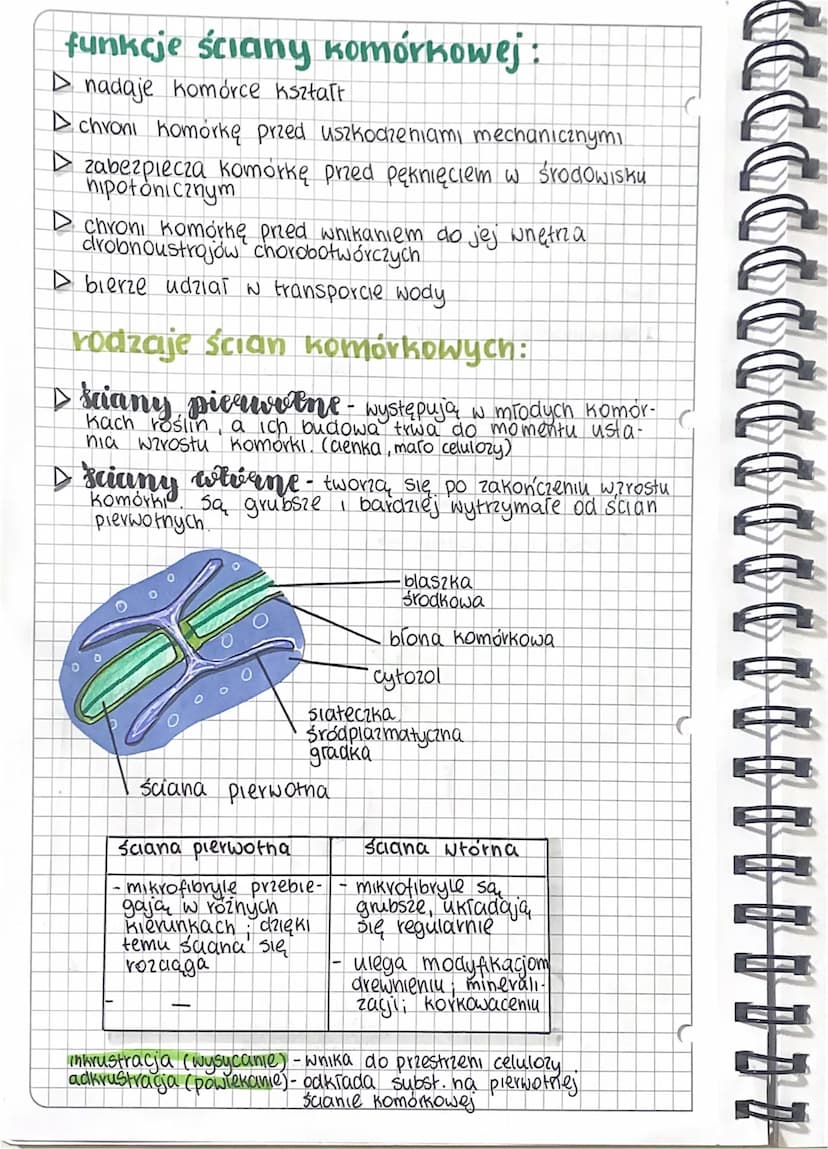 funkcje ściany komórkowej:
▷ nadaje komórce kształt
▷ chroni komórkę przed uszkodzeniami mechanicznymi
▷ zabezpiecza komórkę przed pęknięciem w środowisku
hipotonicznym
▷ chroni komórkę przed wnikaniem do jej wnętrza
drobnoustrojów chorobotwórczych
▷ bierze udział w transporcie wody
rodzaje ścian komórkowych:
▷ ściany pierwotne - występują w młodych komór-
kach roślin, a ich budowa trwa do momentu usta-
nia wzrostu komórki. (cienka, mało celulozy)
▷ ściany wtórne - tworzą się po zakończeniu wzrostu
komórki. Są grubsze i bardziej wytrzymałe od ścian
pierwotnych.
blaszka
środkowa
błona komórkowa
cytozol
siateczka
śródplazmatyczna
gładka
ściana pierwotna
ściana pierwotna
- mikrofibryle przebie-
gają w różnych
kierunkach; dzięki
temu ściana się
rozciąga
- —
ściana wtórna
- mikrofibryle są
grubsze, układają
się regularnie
- ulega modyfikacjom
drewnieniu; minerali-
zacji; korkowaceniu
inkrustracja (wysycanie) - wnika do przestrzeni celulozy
adkrustracja (powlekanie) - odkłada subst. na pierwotnej
ścianie komórkowej